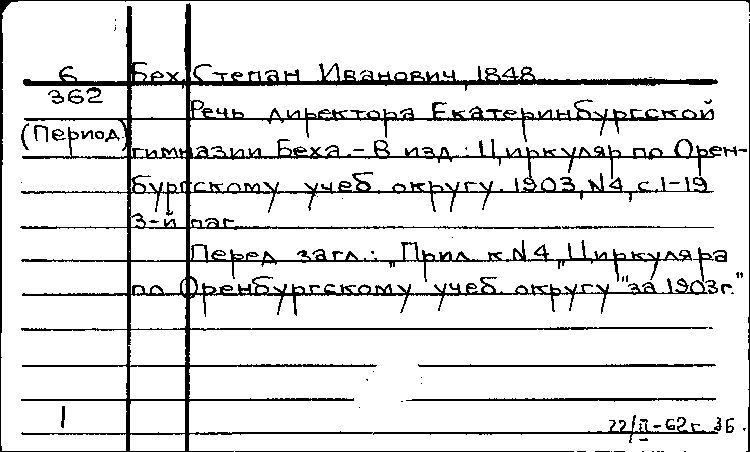 6 Бех, Степан Иванович, 1848
362 Речь директора Екатеринбургской
(Период.) гимназии Беха. - В изд.: Циркуляр по Орен-
бургскому учеб. округу. 1903, N4, с. 1-19
3-й паг.
Перед загл.: „Прил. к N4 „Циркуляра
по Оренбургскому учеб. округу" за 1903г."
1 22/II-62г. ЗБ.